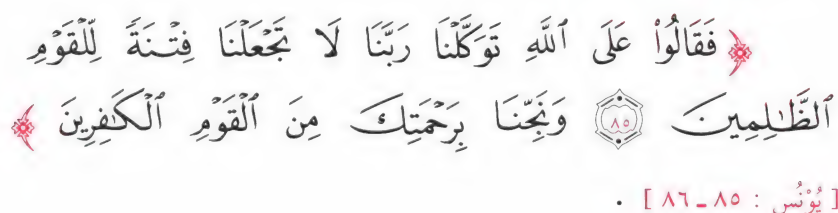 ﴿ فَقَالُوا۟ عَلَى ٱللَّهِ تَوَكَّلْنَا رَبَّنَا لَا تَجْعَلْنَا فِتْنَةً لِّلْقَوْمِ
ٱلظَّـٰلِمِينَ ٨٥ وَنَجِّنَا بِرَحْمَتِكَ مِنَ ٱلْقَوْمِ ٱلْكَـٰفِرِينَ ﴾
[ يُوْنُس : ٨٥ ـ ٨٦ ] .